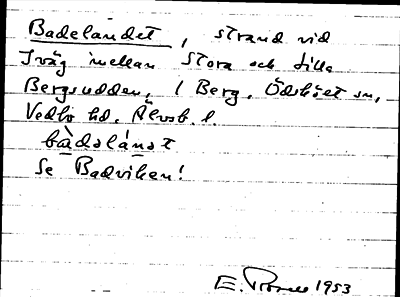 Badelandet, strand vid
Iväg mellan Stora och Lilla
Bergsudden, i Berg, Ödskölt sn,
Vedbo hd. Älvsb. l.
bàdəlánət
Se Badviken!
E. 1953